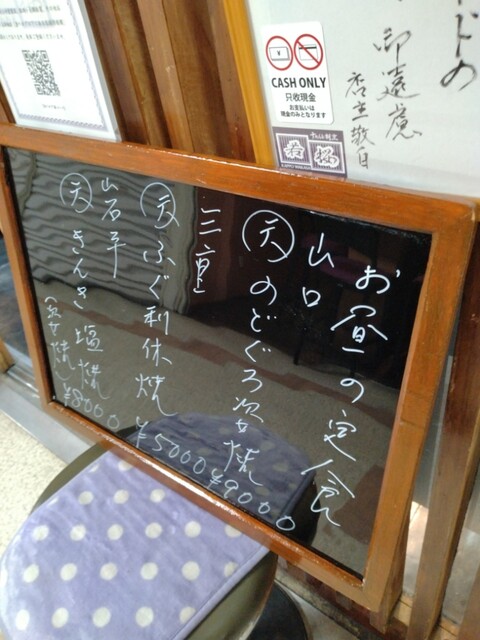 ドの
御遠慮
店主敬白
CASH ONLY
只收現金
お支払いは
現金のみとなります
お昼の定食
山口
天のどぐろ姿焼 ¥9000
三重
天ふぐ利休焼 ¥5000
岩手
天きんき塩焼
(姿焼) ¥8000